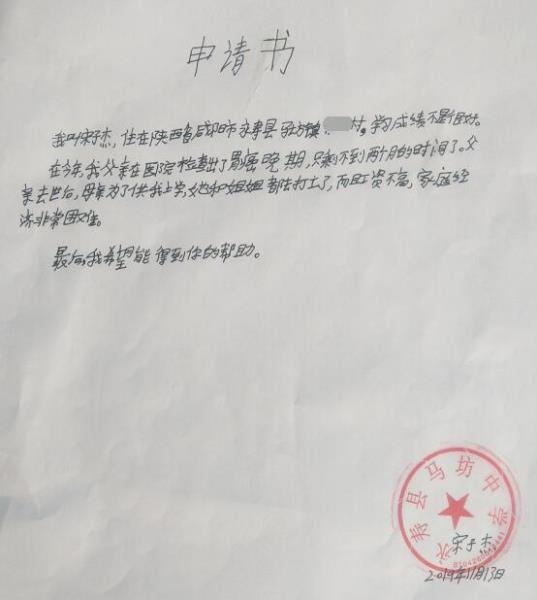 申请书
我叫宋子杰，住在陕西省咸阳市永寿县马坊镇 村。学习成绩不是很好。
在今年，我父亲在医院检查出了胃癌晚期，只剩不到两个月的时间了。父
亲去世后，母亲为了供我上学，她和姐姐都去打工了，而且工资不高，家庭经
济非常困难。
最后，我希望能得到你的帮助。
永寿县马坊中学
宋子杰
2019年11月13日